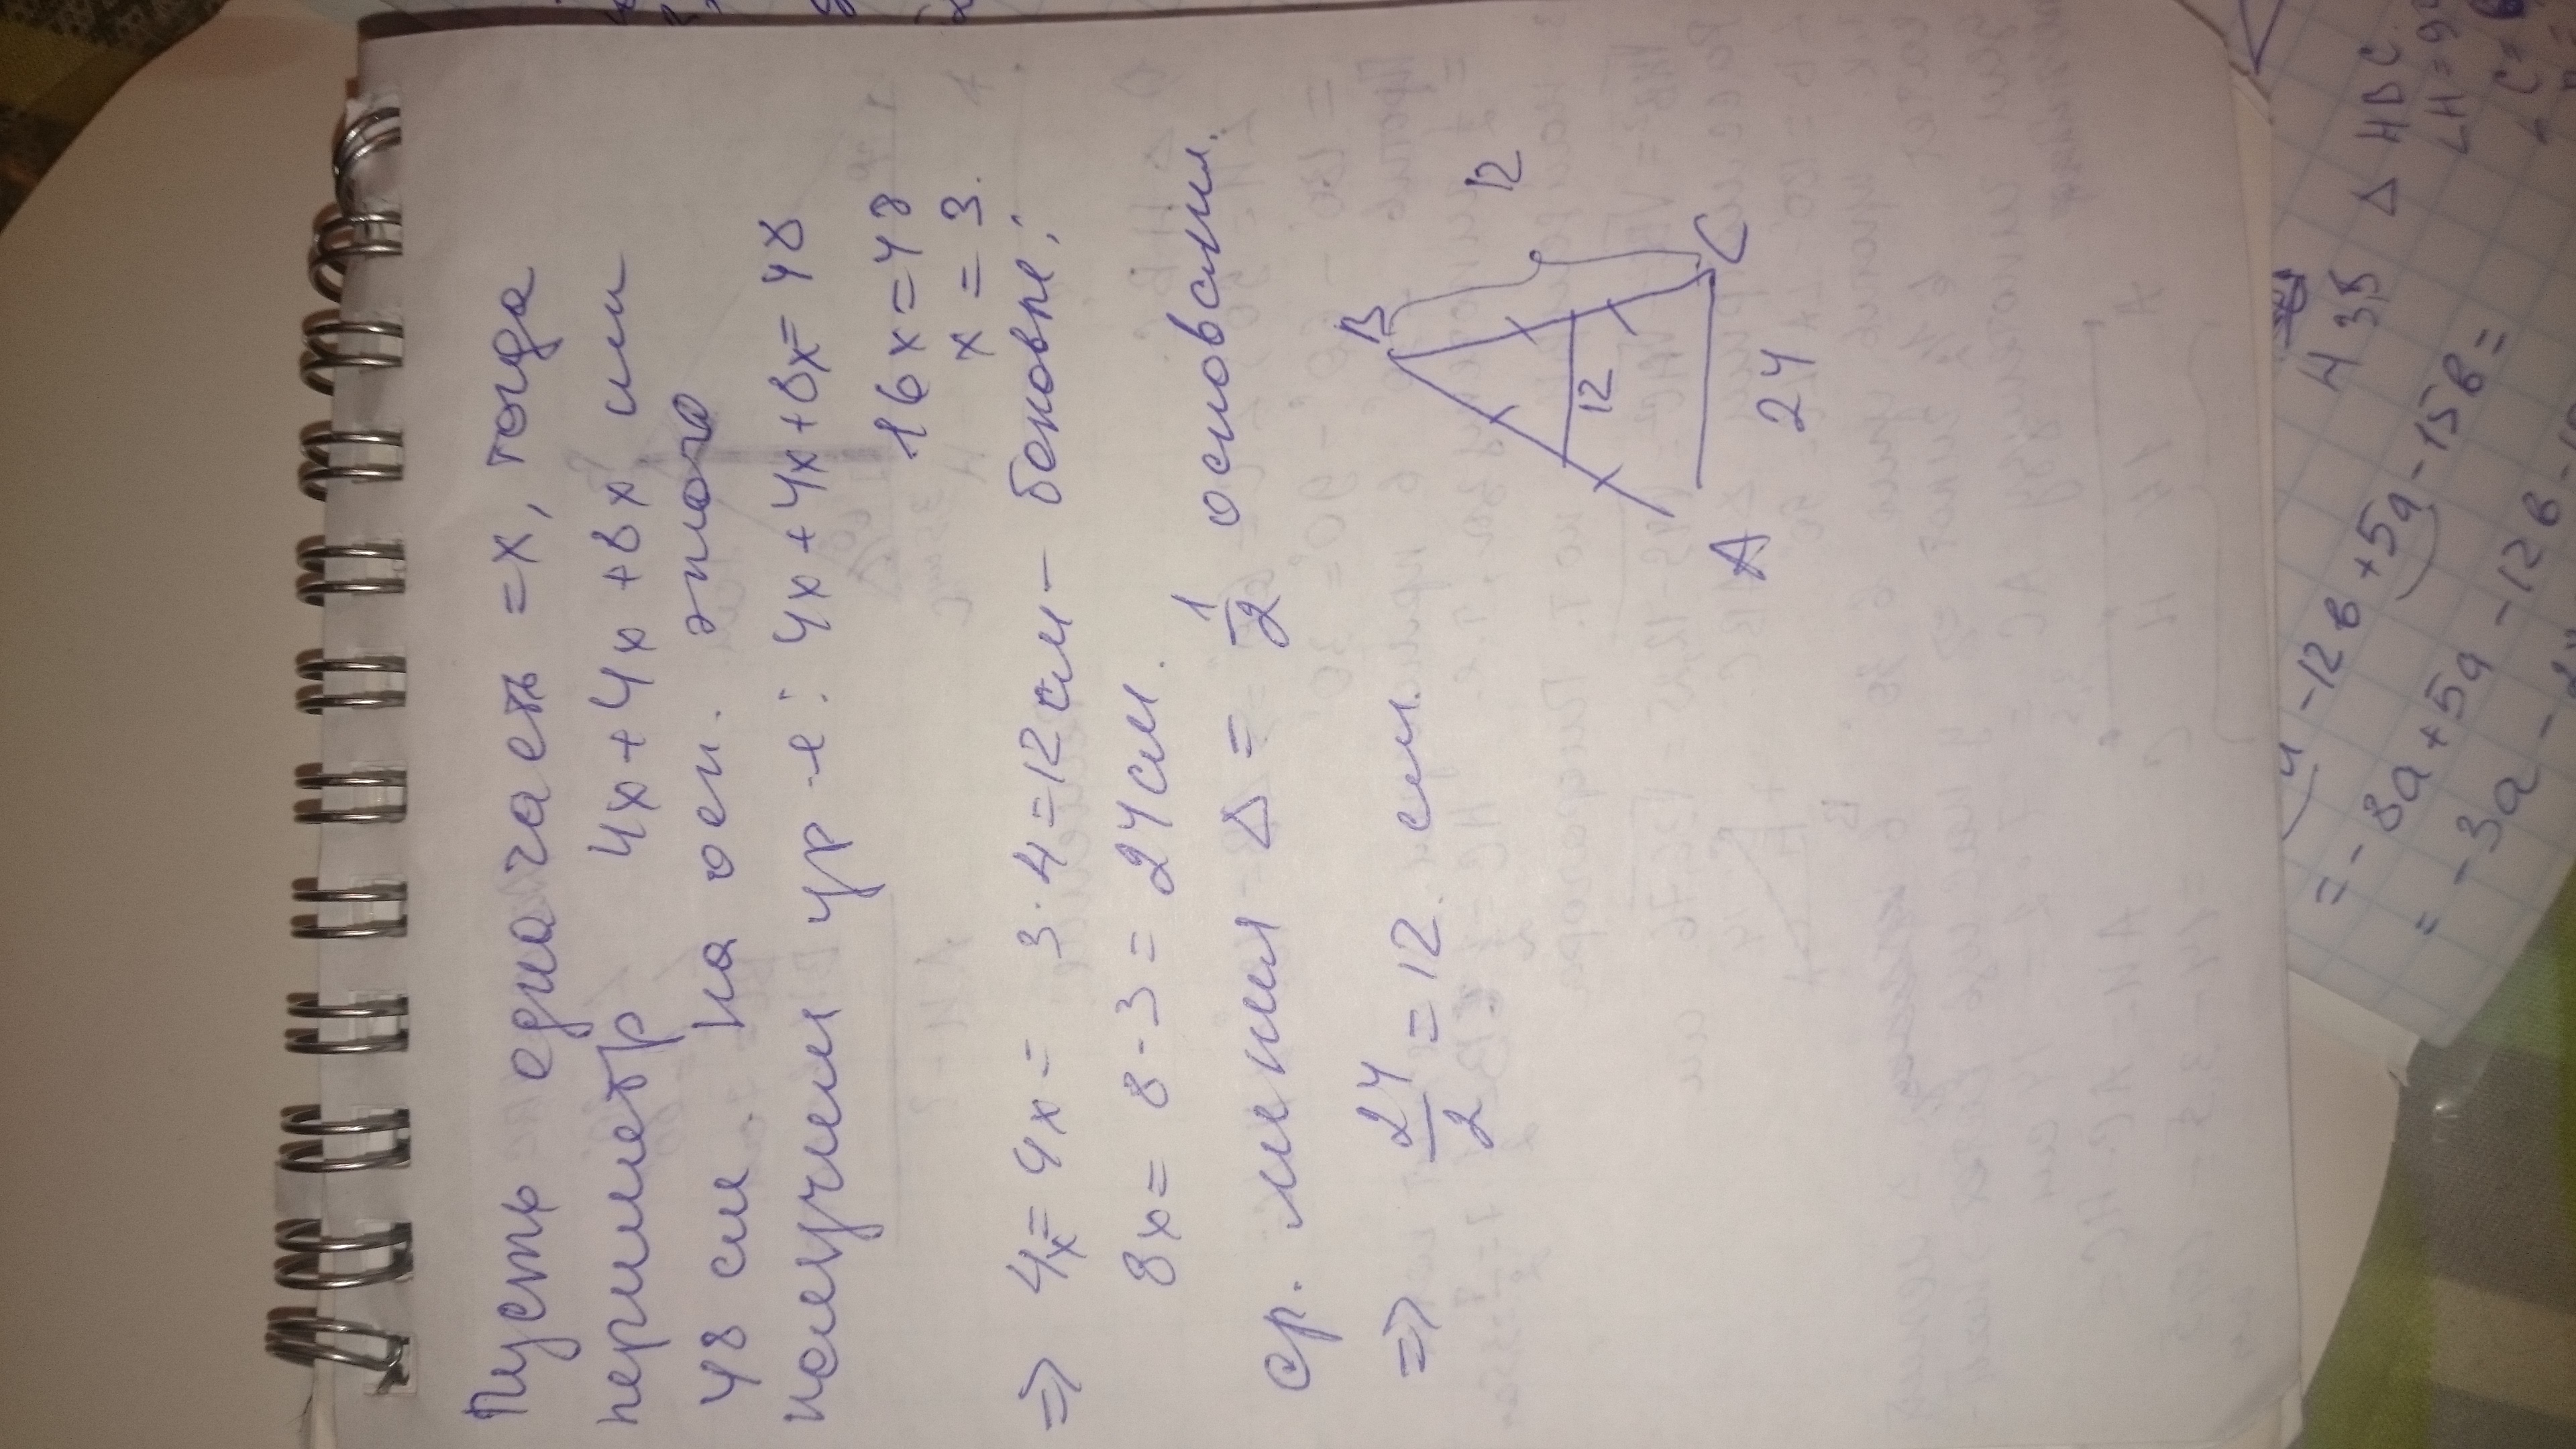 Пусть едина часть = x, тогда
периметр 4x + 4x + 8x или
48 см. На осн. этого
получим ур-е: 4x + 4x + 8x = 48
16x = 48
x = 3.
=> 4x = 4x = 3 · 4 = 12 см - боковые;
8x = 8 · 3 = 24 см.
ср. линия Δ = 1/2 основания.
=> 24/2 = 12 см.
B
12
12
A
24
C
Δ HBC
C =
H 3B
-12b + 5a - 15b =
= -8a + 5a - 12b -
= -3a -